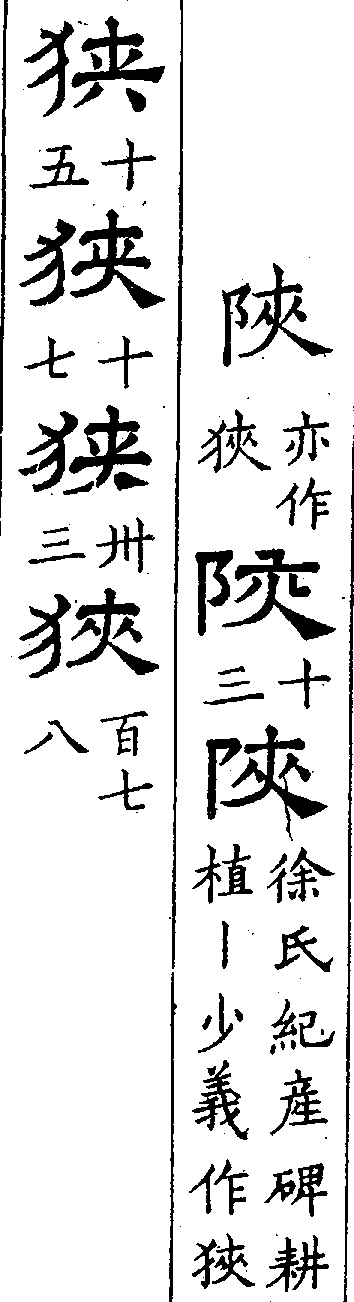 陜亦作狹陜十三陜徐氏紀産碑耕植丨少義作狹
狭十五狭十七狭卅三狹百七八